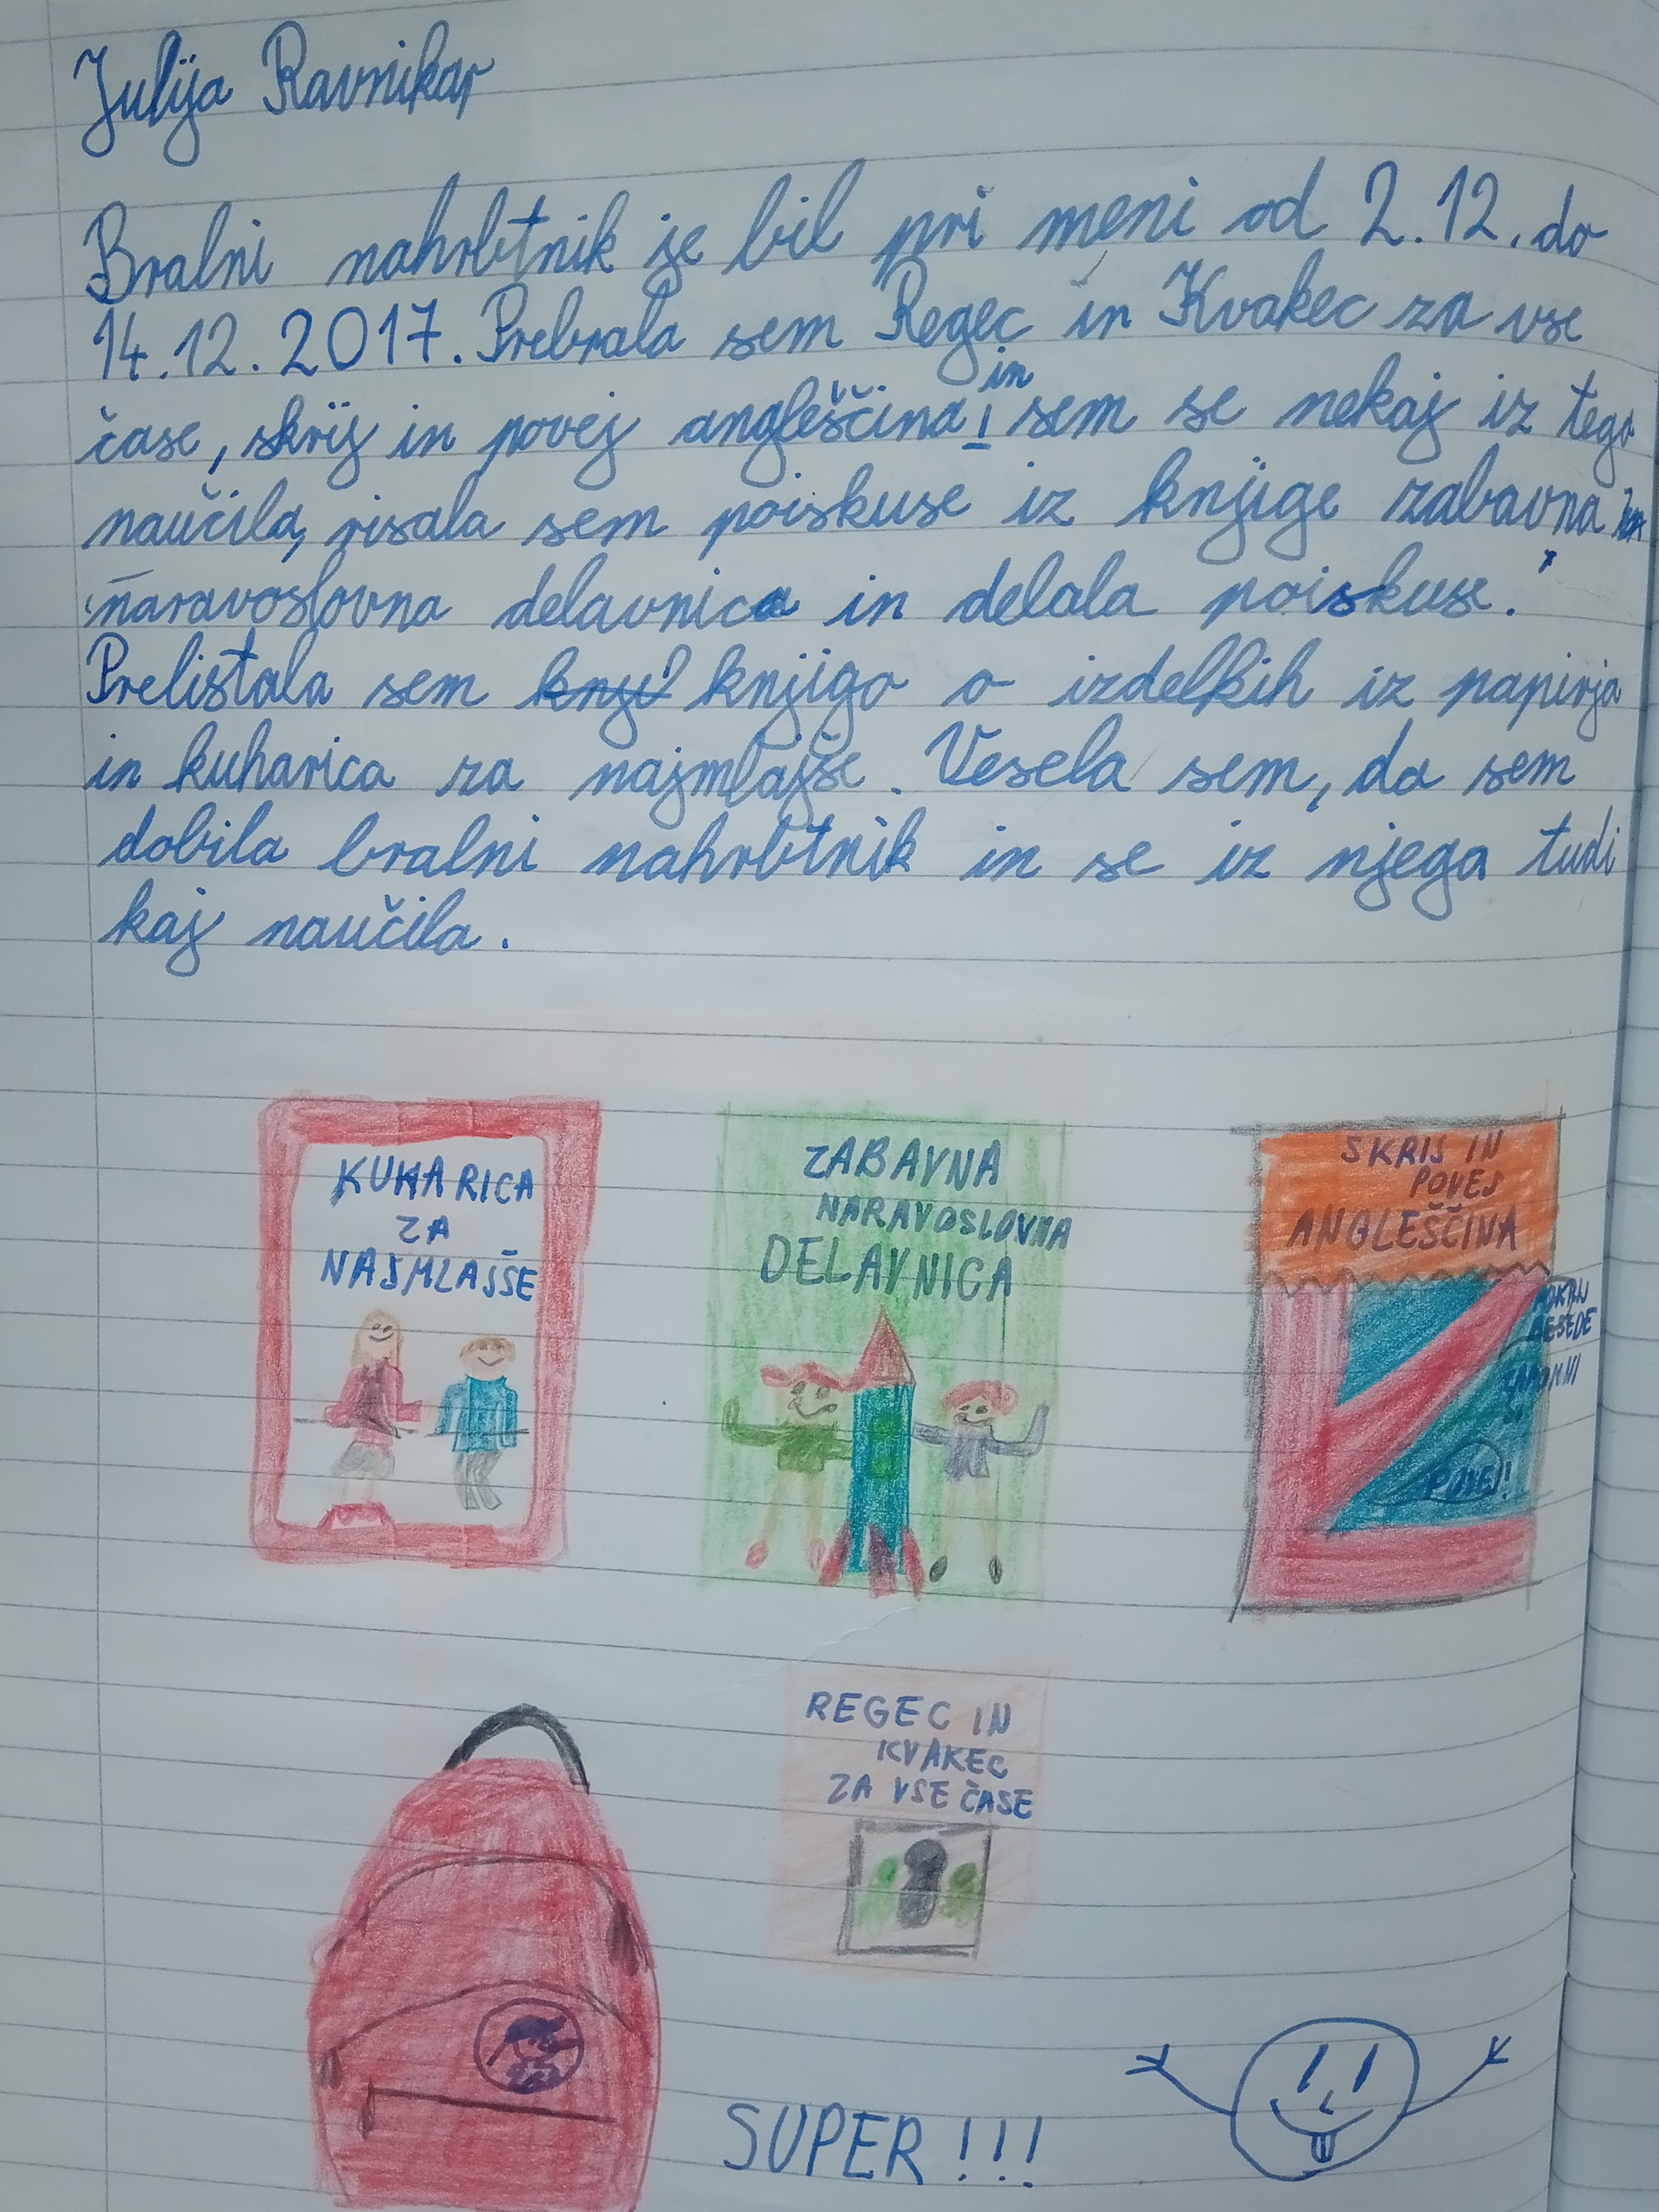 Julija Ravnikar
Bralni nahrbtnik je bil pri meni od 2.12. do
14.12.2017. Prebrala sem Regec in Kvakec za vse
čase, skrij in povej angleščina in sem se nekaj iz tega
naučila, risala sem poiskuse iz knjige zabavna
naravoslovna delavnica in delala poiskuse.
Prelistala sem knji knjigo o izdelkih iz papirja
in kuharica za najmlajše. Vesela sem, da sem
dobila bralni nahrbtnik in se iz njega tudi
kaj naučila.
KUHARICA
ZA
NAJMLAJŠE
ZABAVNA
NARAVOSLOVNA
DELAVNICA
SKRIJ IN
POVEJ
ANGLEŠČINA
POVEJ!
REGEC IN
KVAKEC
ZA VSE ČASE
SUPER!!!